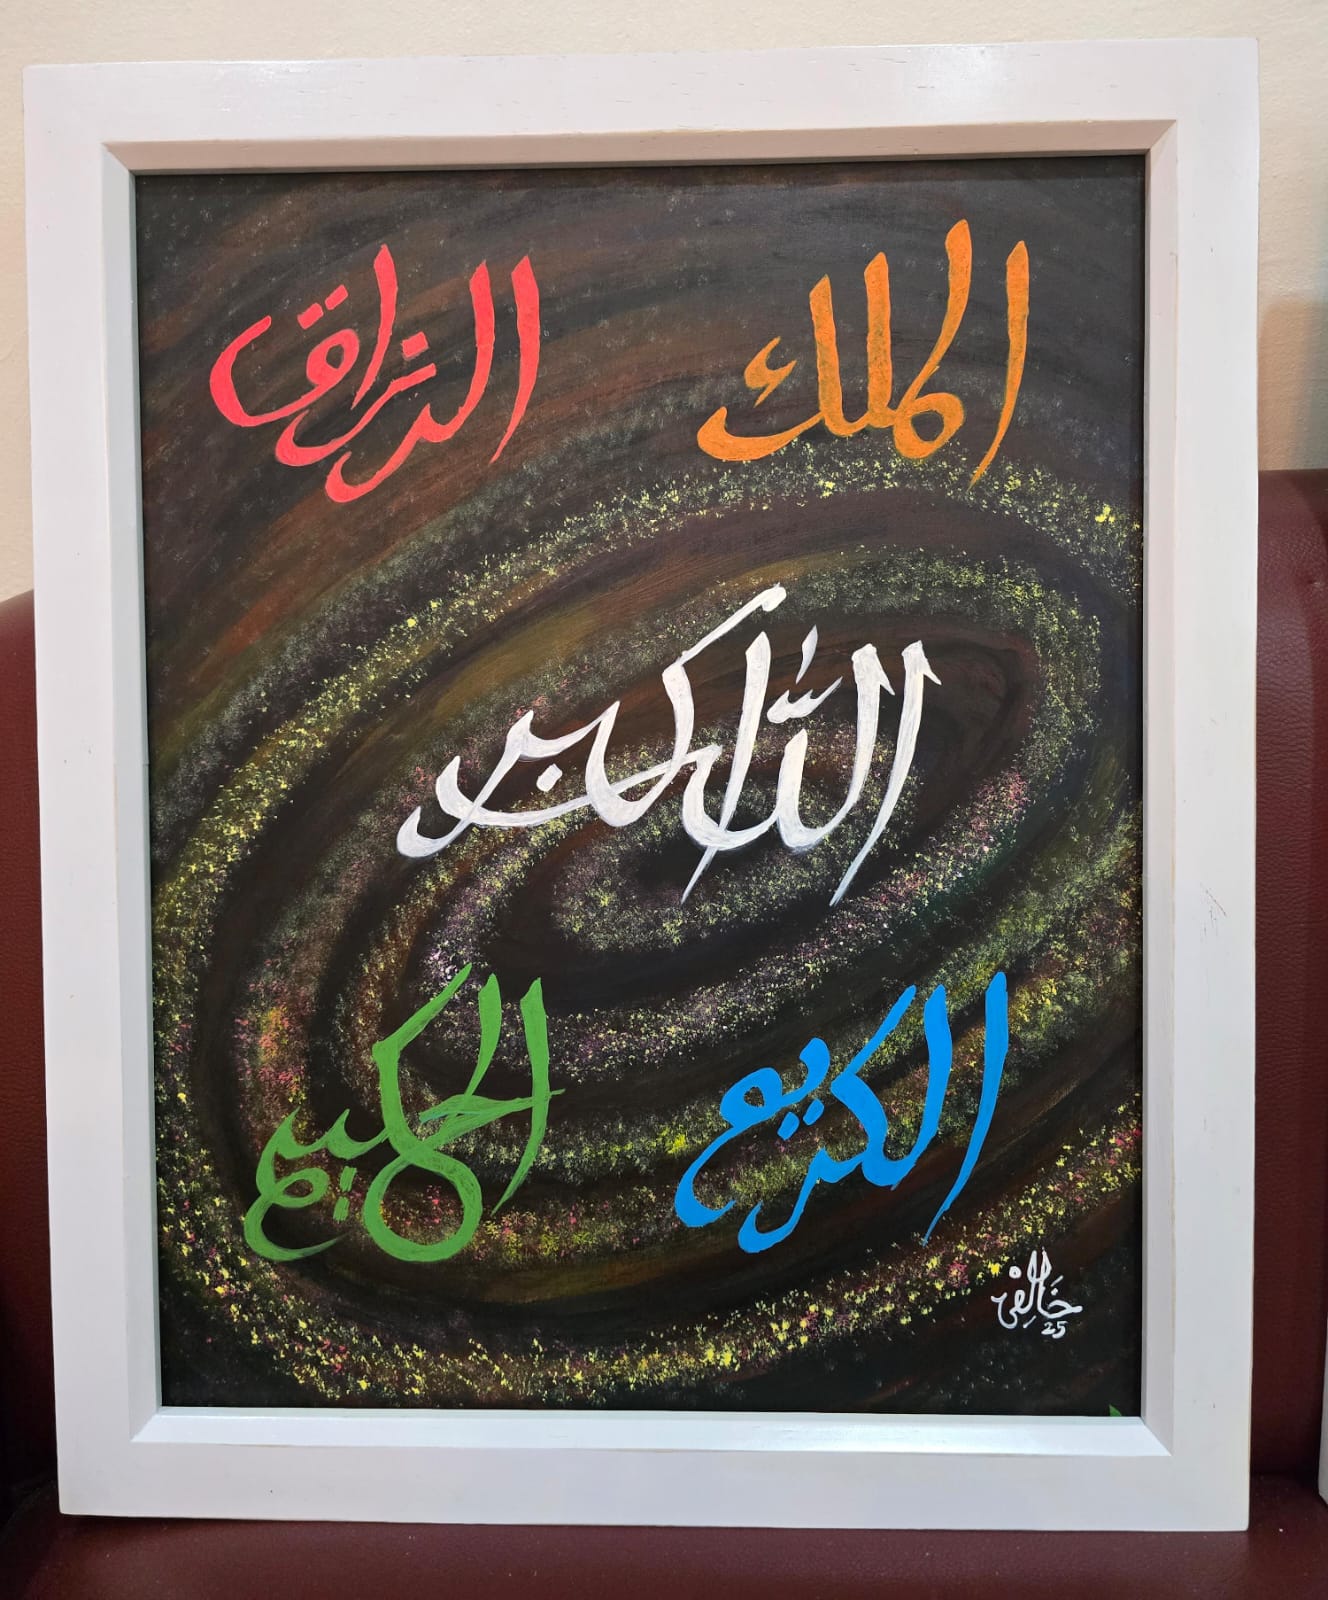 الملك
الرزاق
الله أكبر
الكريم
الحكيم
25